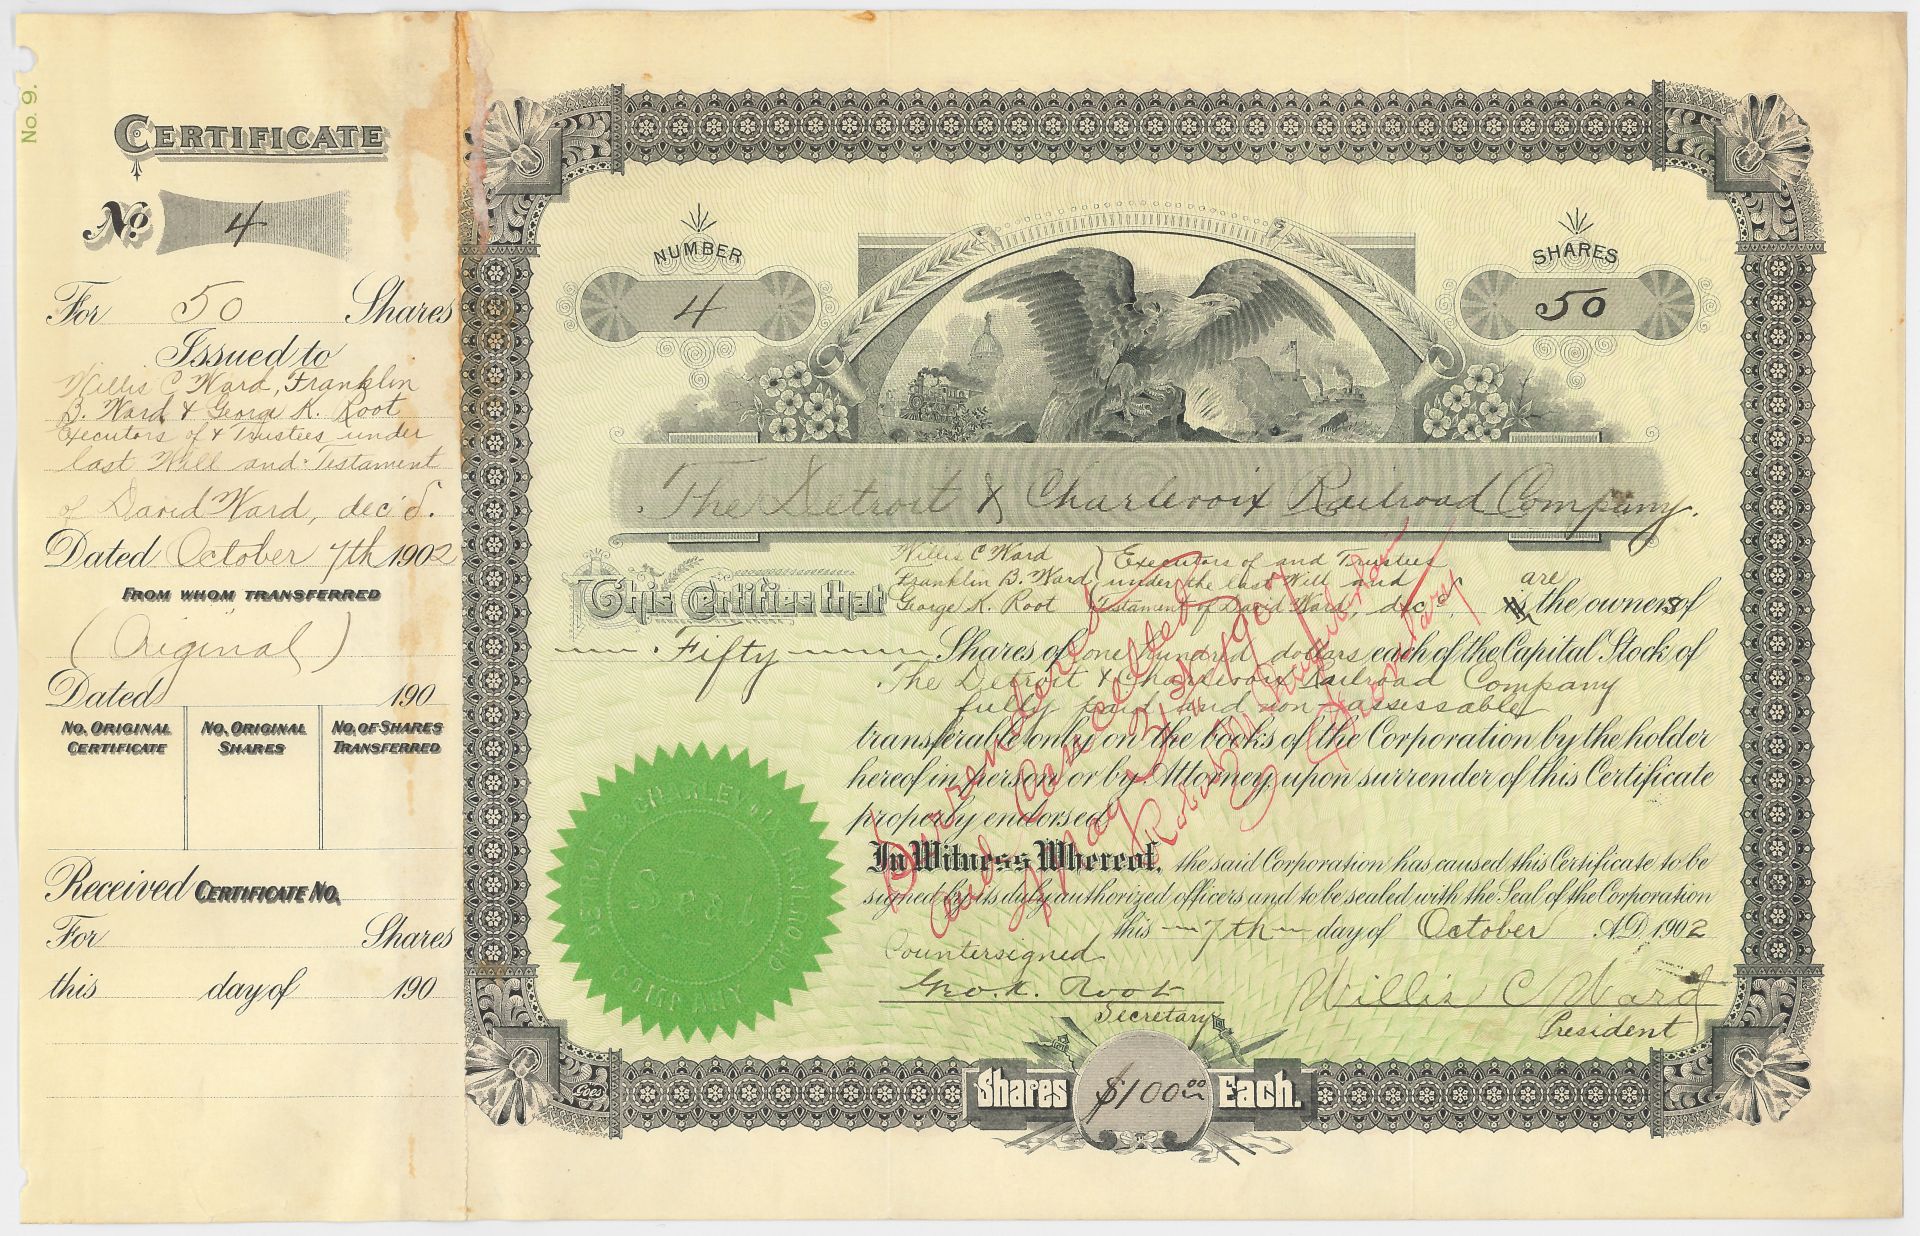 No. 9.
CERTIFICATE
No. 4
For 50 Shares
Issued to
Willis C Ward, Franklin
B. Ward & George K. Root
Executors of & Trustees under
last Will and Testament
of David Ward, dec'd.
Dated October 7th 1902
FROM WHOM TRANSFERRED
(Original)
Dated 190
NO. ORIGINAL CERTIFICATE
NO. ORIGINAL SHARES
NO. OF SHARES TRANSFERRED
Received CERTIFICATE NO.
For Shares
this day of 190
NUMBER
4
SHARES
50
The Detroit & Charlevoix Railroad Company.
This Certifies that
Willis C Ward
Franklin B. Ward
George K. Root
Executors of and Trustees
under the last Will and
Testament of David Ward, dec'd,
are
the owners of
Fifty Shares of one hundred dollars each of the Capital Stock of
The Detroit & Charlevoix Railroad Company
fully paid and non-assessable
transferable only on the books of the Corporation by the holder
hereof in person or by Attorney, upon surrender of this Certificate
properly endorsed.
In Witness Whereof, the said Corporation has caused this Certificate to be
signed by its duly authorized officers and to be sealed with the Seal of the Corporation
this 7th day of October A.D. 1902
Countersigned
Geo. K. Root
Secretary
Willis C Ward
President
Surrendered
and Cancelled
May 31st 1907
Secretary
DETROIT & CHARLEVOIX RAILROAD COMPANY
Goes
Shares $100.00 Each.